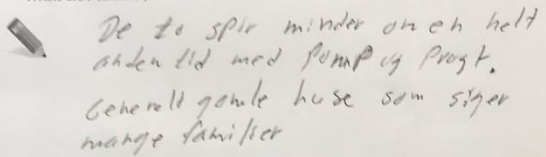 De to spir minder om en helt
anden tid med Pomp og Pragt.
Generelt gamle huse som siger
mange familier